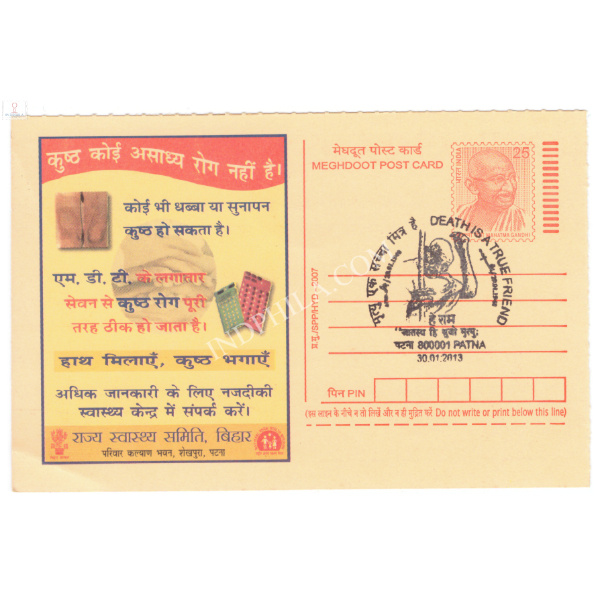 कुष्ठ कोई असाध्य रोग नहीं है।
कोई भी धब्बा या सुनापन
कुष्ठ हो सकता है।
एम. डी. टी. के लगातार
सेवन से कुष्ठ रोग पूरी
तरह ठीक हो जाता है।
हाथ मिलाएँ, कुष्ठ भगाएँ
अधिक जानकारी के लिए नजदीकी
स्वास्थ्य केन्द्र में संपर्क करें।
राज्य स्वास्थ्य समिति, बिहार
परिवार कल्याण भवन, शेखपुरा, पटना
मेघदूत पोस्ट कार्ड
MEGHDOOT POST CARD
भारत INDIA
25
MAHATMA GANDHI
मृत्यु एक सच्चा मित्र है DEATH IS A TRUE FRIEND
हे राम
"जातस्य हि ध्रुवो मृत्यु:
पटना 800001 PATNA
30.01.2013
2007
पिन PIN
(इस लाइन के नीचे न तो लिखें और न ही मुद्रित करें Do not write or print below this line)
INDPHILA.COM